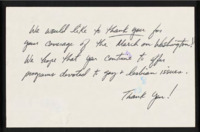 We would like to thank you for
your coverage of the March on Washington!
We hope that you continue to offer
programs devoted to gay & lesbian issues.
Thank You!